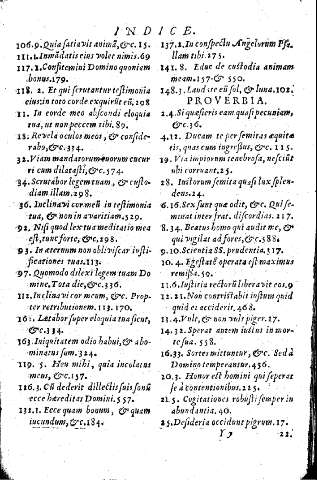 INDICE.
106.9. Quia satiavit animã, &c. 15.
111.1. Inmãdatis eius volet nimis. 69
117.1. Confitemini Domino quoniem
bonus. 179.
118. 2. Et qui scrutantur testimonia
eius; in toto corde exquirũt eũ, 108
11. In corde meo abscondi eloquia
tua, ut non peccem tibi. 89.
18. Revela oculos meos, & conside-
rabo, &c. 334.
32. Viam mandatorum tuorum cucur
ri cum dilatasti, &c. 574.
34. Scrutabor legem tuam, & custo-
diam illam. 298.
36. Inclina cor meũ in testimonia
tua, & non in avaritiam. 529.
92. Nisi quod lex tua meditatio mea
est, tunc forte, &c. 298.
93. In aeternum non obliviscar iusti-
ficationes tuas. 113.
97. Quomodo dilexi legem tuam Do
mine, Tota die, &c. 336.
112. Inclinavi cor meum, &c. Prop-
ter retributionem. 113. 170.
162. Laetabor super eloquia tua sicut,
&c. 314.
163. Iniquitatem odio habui, & abo-
minatus sum. 324.
119. 5. Heu mihi, quia incolatus
meus, &c. 137.
126.3. Cũ dederit dilectis suis sonũ
ecce haereditas Domini. 557.
132.1. Ecce quam bonum, & quam
iucundum, &c. 184.
137.2. In conspectu Angelorum Psa
llam tibi. 275.
141. 8. Educ de custodia animam
meam. 157. & 550.
148.3. Laudate eũ sol, & luna. 102.
PROVERBIA.
2.4. Si quaesieris eam quasi pecuniam,
&c. 36.
4.12. Ducam te per semitas aequita
tis, quas cum ingressus, &c. 115.
19. Via impiorum tenebrosa, nesciũt
ubi corruant. 25.
28. Iustorum semita quasi lux splen-
dens. 24.
6.16. Sex sunt quae odit, &c. Qui se-
minat inter frat. discordias. 217.
8.34. Beatus homo qui audit me, &
qui vigilat ad fores, &c. 588.
9.10. Scientia SS. prudentia. 317.
10.4. Egestatẽ operata est maximus
remissa. 59.
11.6. Iustitia rectorũ liberavit eos. 9
12.21. Non contristabit iustum quid
quid ei acciderit. 468.
13.4. Vult, & non vult piger. 17.
14.32. Sperat autem iustus in mor-
te sua. 558.
16.33. Sortes mittuntur, &c. Sed à
Domino temperantur. 456.
20.3. Honor est homini qui seperat
se à contentionibus. 225.
21.5. Cogitationes robusti semper in
abundantia. 40.
25. Desideria occidunt pigrum. 17.
Y y 22.